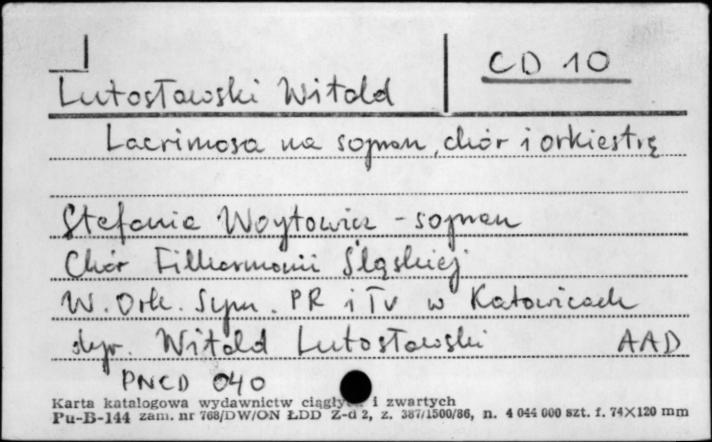 CD 10
Lutosławski Witold
Lacrimosa na sopran, chór i orkiestrę
Stefania Woytowicz - sopran
Chór Filharmonii Śląskiej
W. Ork. Sym. PR i TV w Katowicach
dyr. Witold Lutosławski AAD
PNCD 040
Karta katalogowa wydawnictw ciągłych i zwartych
Pu-B-144 zam. nr 768/DW/ON ŁDD Z-d 2, z. 387/1500/86, n. 4 044 000 szt. f. 74×120 mm